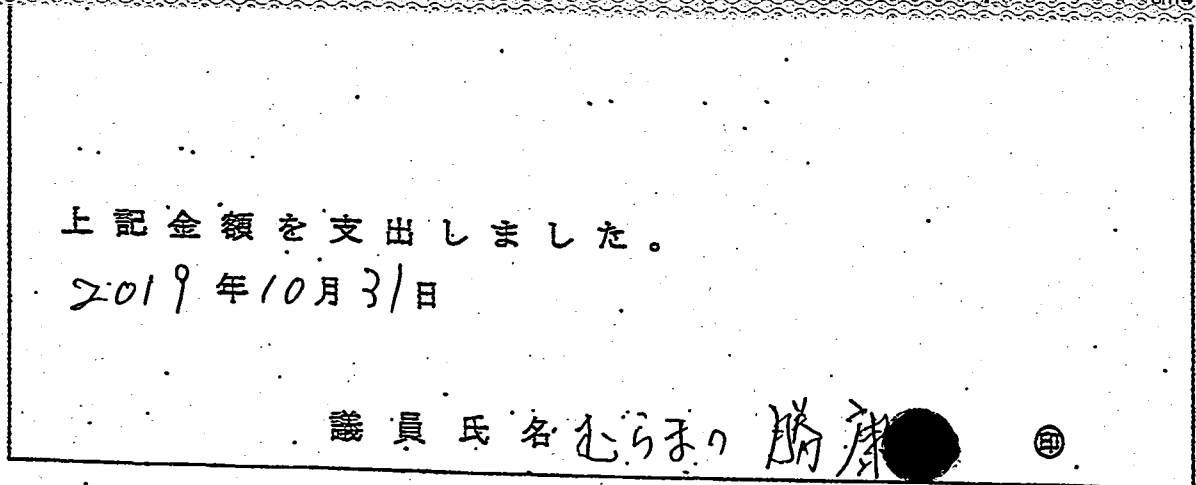 上記金額を支出しました。
2019年10月31日
議員氏名 むらまつ 勝康 ㊞